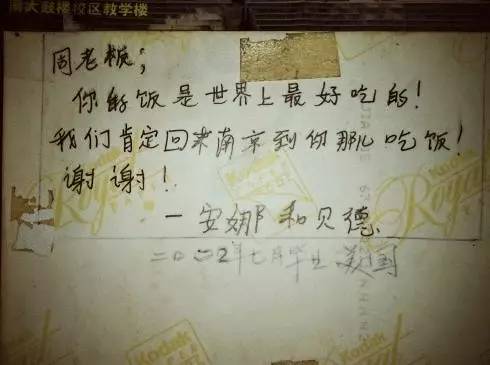 南大鼓楼校区教学楼
周老板；
你的饭是世界上最好吃的！
我们肯定回来南京到你那儿吃饭！
谢谢！
一安娜和贝德
二〇〇2年七月毕业 美国
Kodak
Kodak
Royal
Kodak
Kodak